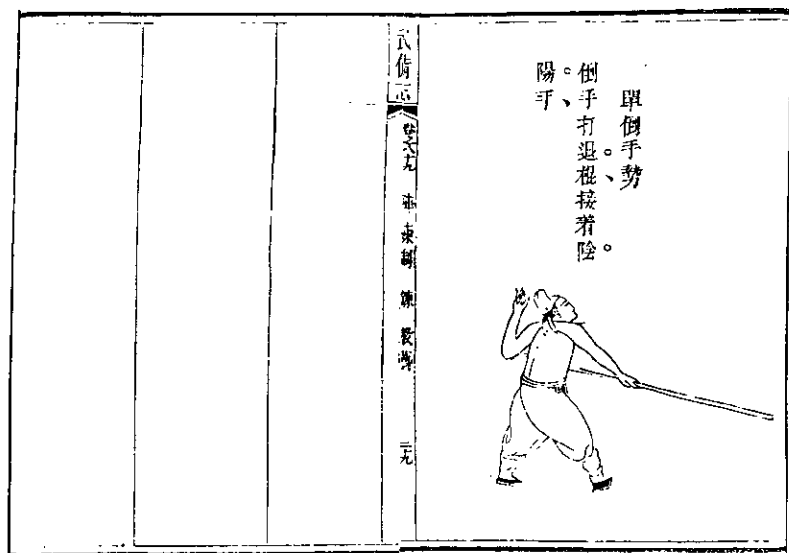 單倒手勢
倒手打退棍接着陰
陽手
武備志
卷八九 陣練制 練 教藝
二九